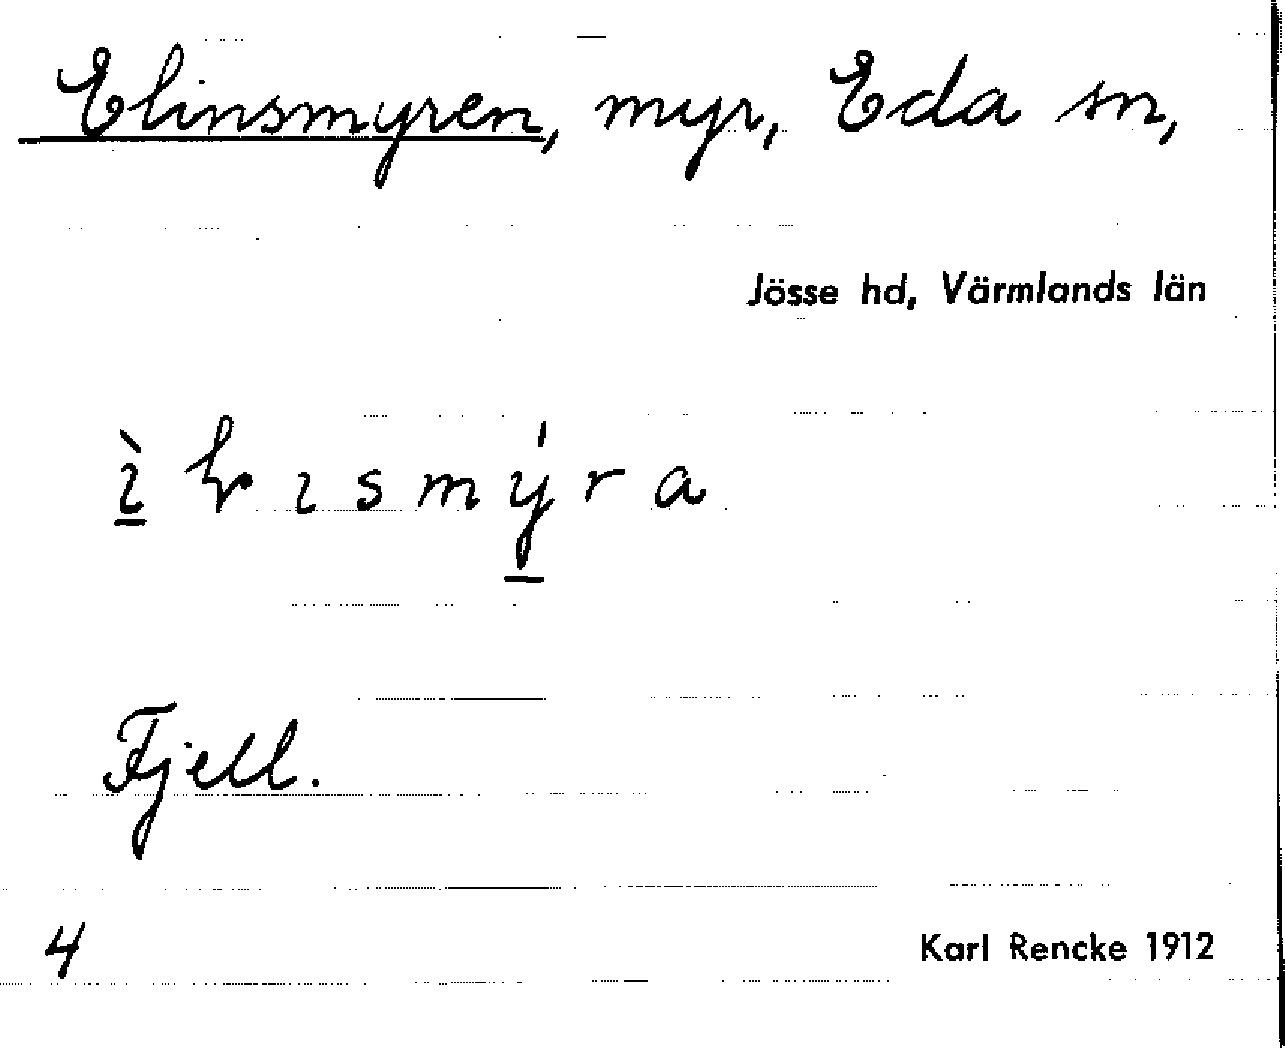 Elinsmyren, myr, Eda sn,
Jösse hd, Värmlands län
Fjell.
4
Karl Rencke 1912